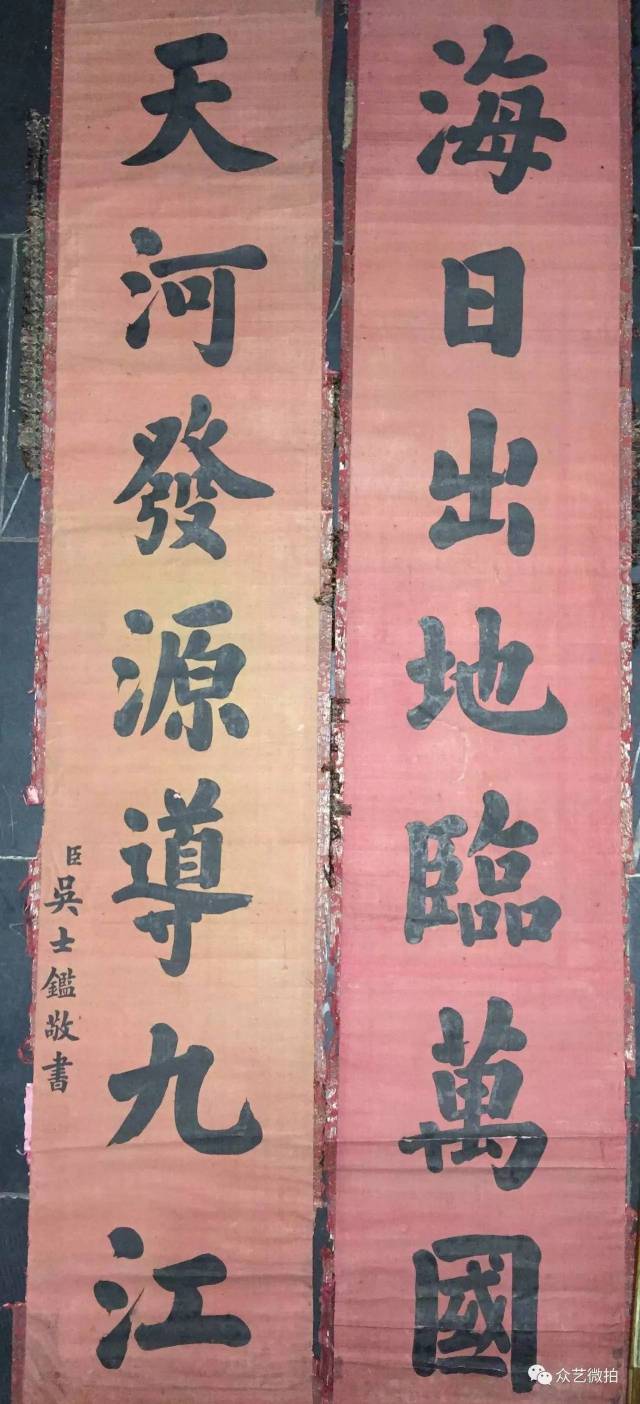 海日出地臨萬國
天河發源導九江
臣吳士鑑敬書
众艺微拍